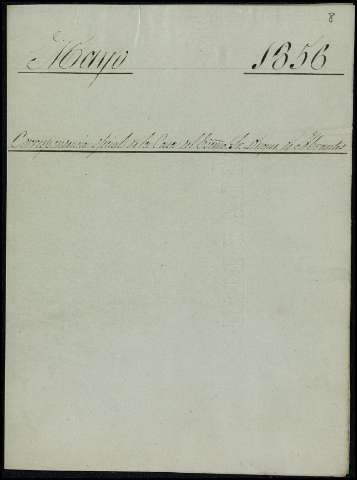 8
Mayo 1856
Correspondencia oficial de la Casa del Excmo Sr. Duque de Abrantes